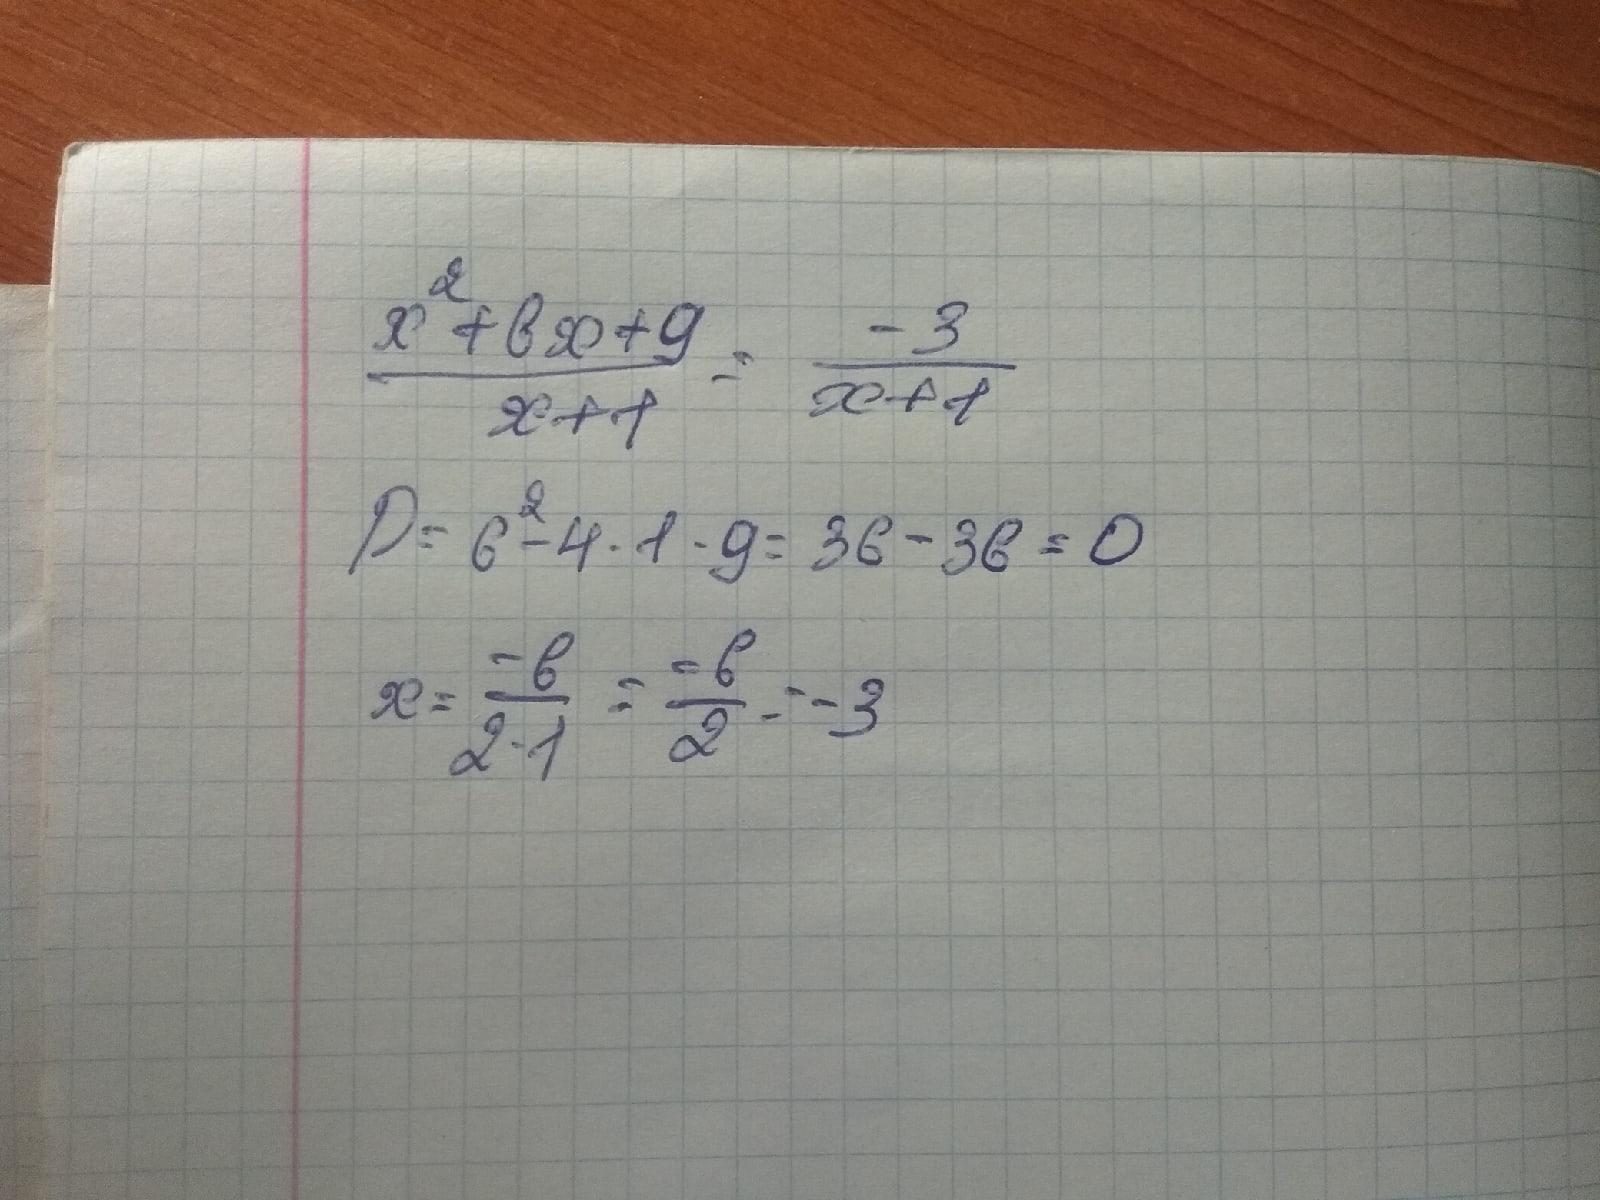 x²+6x+9/x+1 = -3/x+1
D= 6²-4·1·9= 36-36=0
x= -6/2·1 = -6/2 = -3